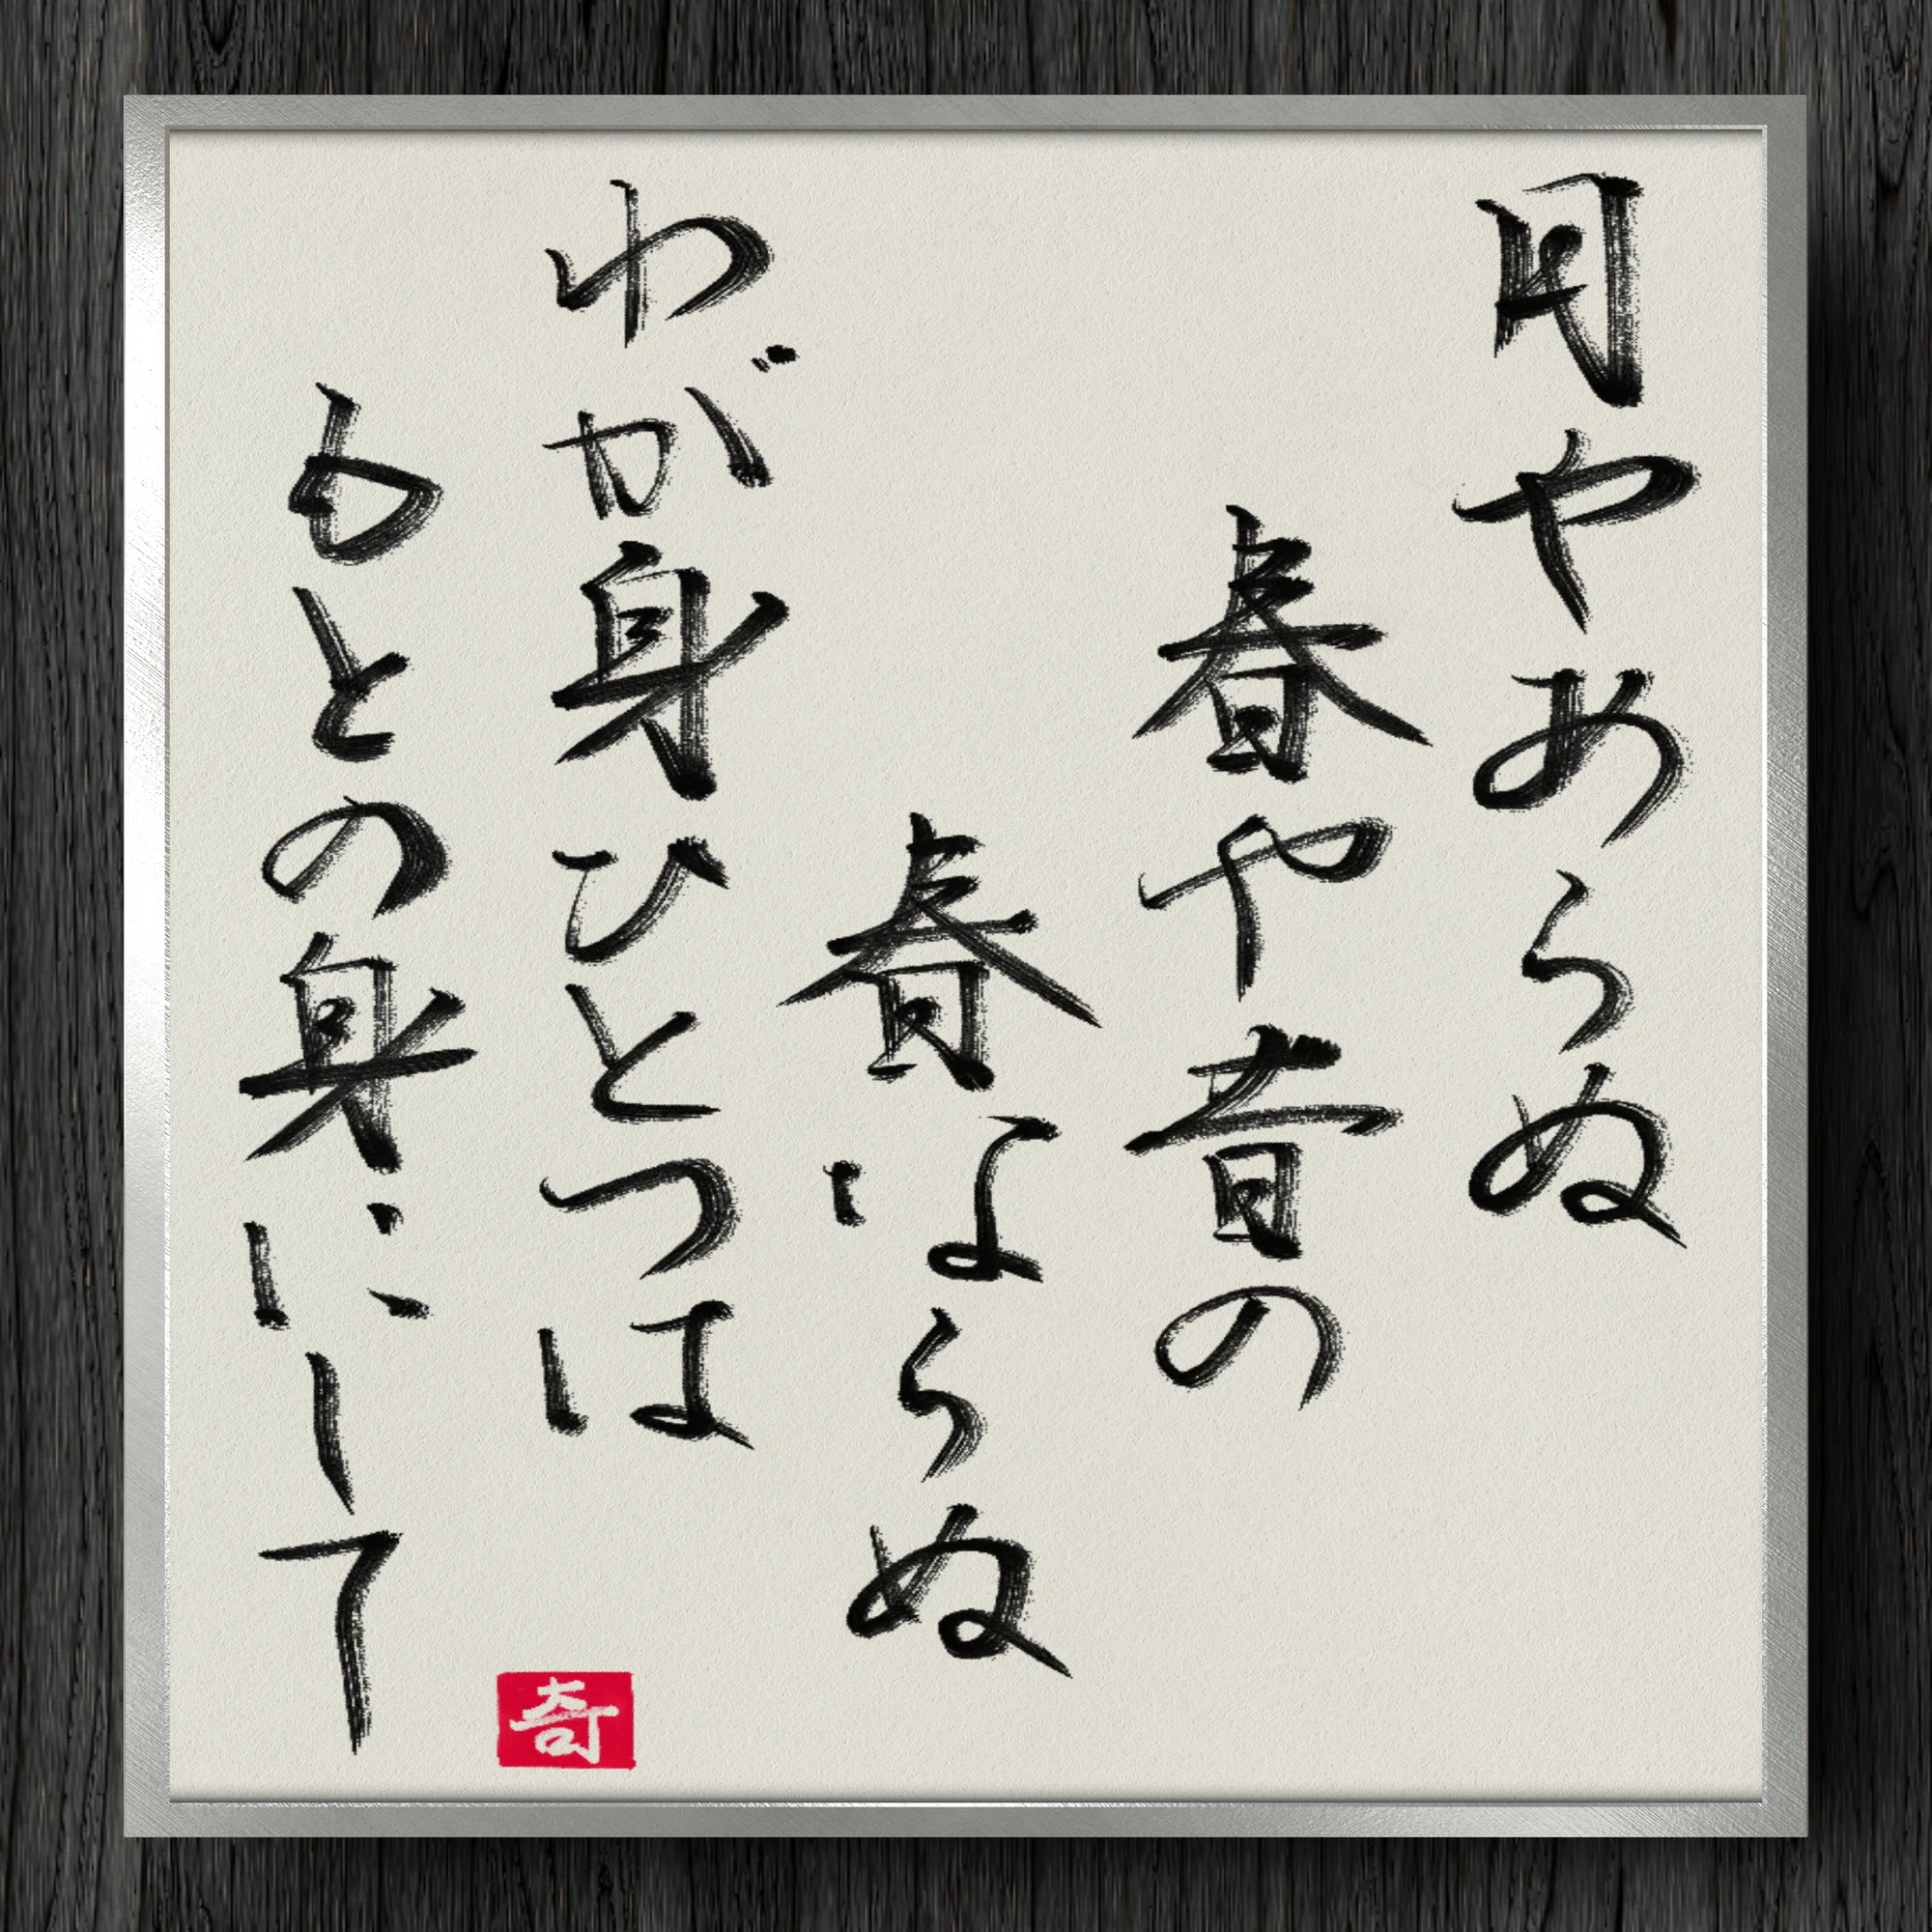 月やあらぬ
春や昔の
春ならぬ
わが身ひとつは
もとの身にして
奇